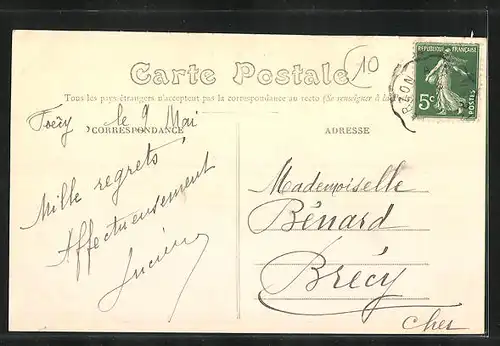 10
RÉPUBLIQUE FRANÇAISE
5c
POSTES
Carte Postale
Tous les pays étrangers n'acceptent pas la correspondance au recto (Se renseigner à la
Foëcy le 9 Mai
CORRESPONDANCE
ADRESSE
Mille regrets
Affectueusement
Lucien
Mademoiselle
Bénard
Brécy
Cher